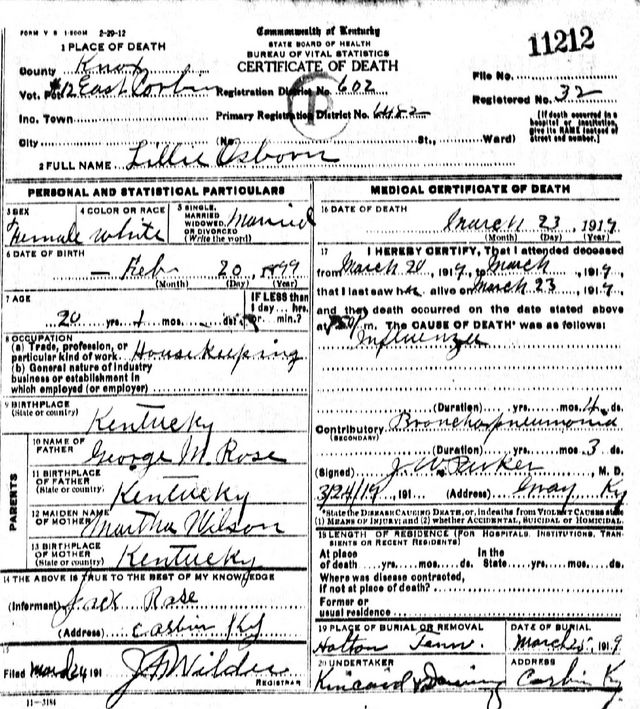 FORM V S 1-500M 2-29-12
Commonwealth of Kentucky
STATE BOARD OF HEALTH
BUREAU OF VITAL STATISTICS
CERTIFICATE OF DEATH
11212
1 PLACE OF DEATH
County Knox
Vot. Pct. #12 East Corbin
Registration District No. 602
File No.
Inc. Town
Primary Registration District No. 6482
Registered No. 32
City (No. St., Ward)
[If death occurred in a hospital or institution, give its NAME instead of street and number.]
2 FULL NAME Lillie Osborn
PERSONAL AND STATISTICAL PARTICULARS
3 SEX
Female
4 COLOR OR RACE
White
5 SINGLE, MARRIED WIDOWED, OR DIVORCED (Write the word)
Married
6 DATE OF BIRTH
Feb 20, 1899
(Month) (Day) (Year)
7 AGE
20 yrs. 1 mos. ds.
IF LESS than 1 day... hrs. or min.?
8 OCCUPATION
(a) Trade, profession, or particular kind of work. Housekeeping
(b) General nature of industry
business or establishment in
which employed (or employer)
9 BIRTHPLACE
(State or country)
Kentucky
PARENTS
10 NAME OF FATHER
George M. Rose
11 BIRTHPLACE OF FATHER
(State or country)
Kentucky
12 MAIDEN NAME OF MOTHER
Martha Wilson
13 BIRTHPLACE OF MOTHER
(State or country)
Kentucky
14 THE ABOVE IS TRUE TO THE BEST OF MY KNOWLEDGE
(Informant) Jack Rose
(Address) Corbin Ky
15
Filed Mar 24 191
REGISTRAR
11-3184
MEDICAL CERTIFICATE OF DEATH
16 DATE OF DEATH
March 23, 1919
(Month) (Day) (Year)
17 I HEREBY CERTIFY, That I attended deceased
from March 20, 1919, to March, 1919,
that I last saw her alive on March 23, 1919
and that death occurred on the date stated above
at m. The CAUSE OF DEATH* was as follows:
Influenza
(Duration) yrs. mos. 4 ds.
Contributory Bronchopneumonia
(SECONDARY)
(Duration) yrs. mos. 3 ds.
(Signed) J. W. Parker, M. D.
3/24/19, 191 (Address) Gray Ky
*State the DISEASE CAUSING DEATH, or, in deaths from VIOLENT CAUSES state
(1) MEANS OF INJURY; and (2) whether ACCIDENTAL, SUICIDAL or HOMICIDAL.
18 LENGTH OF RESIDENCE (FOR HOSPITALS, INSTITUTIONS, TRANSIENTS OR RECENT RESIDENTS)
At place of death yrs. mos. ds.
In the State yrs. mos. ds.
Where was disease contracted,
if not at place of death?
Former or
usual residence
19 PLACE OF BURIAL OR REMOVAL
Holton Tenn.
DATE OF BURIAL
March 25, 1919
20 UNDERTAKER
Kincaid &
ADDRESS
Corbin Ky